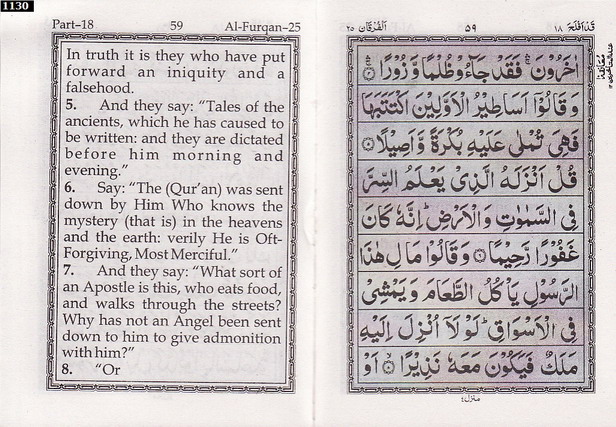 1130
Part–18 59 Al-Furqan–25
In truth it is they who have put
forward an iniquity and a
falsehood.
5. And they say: “Tales of the
ancients, which he has caused to
be written: and they are dictated
before him morning and
evening.”
6. Say: “The (Qur’an) was sent
down by Him Who knows the
mystery (that is) in the heavens
and the earth: verily He is Oft-
Forgiving, Most Merciful.”
7. And they say: “What sort of
an Apostle is this, who eats food,
and walks through the streets?
Why has not an Angel been sent
down to him to give admonition
with him?”
8. “Or
قَدْ اَفْلَحَ ١٨ ٥٩ اَلْفُرْقَان ٢٥
اٰخَرُوْنَ ۛ فَقَدْ جَآءُوْ ظُلْمًا وَّزُوْرًا ۝
وَقَالُوْٓا اَسَاطِيْرُ الْاَوَّلِيْنَ اكْتَتَبَهَا
فَهِىَ تُمْلٰى عَلَيْهِ بُكْرَةً وَّاَصِيْلًا ۝
قُلْ اَنْزَلَهُ الَّذِىْ يَعْلَمُ السِّرَّ
فِى السَّمٰوٰتِ وَالْاَرْضِ ؕ اِنَّهٗ كَانَ
غَفُوْرًا رَّحِيْمًا ۝ وَقَالُوْا مَالِ هٰذَا
الرَّسُوْلِ يَاْكُلُ الطَّعَامَ وَيَمْشِىْ
فِى الْاَسْوَاقِ ؕ لَوْلَآ اُنْزِلَ اِلَيْهِ
مَلَكٌ فَيَكُوْنَ مَعَهٗ نَذِيْرًا ۝ اَوْ
منزل ٤